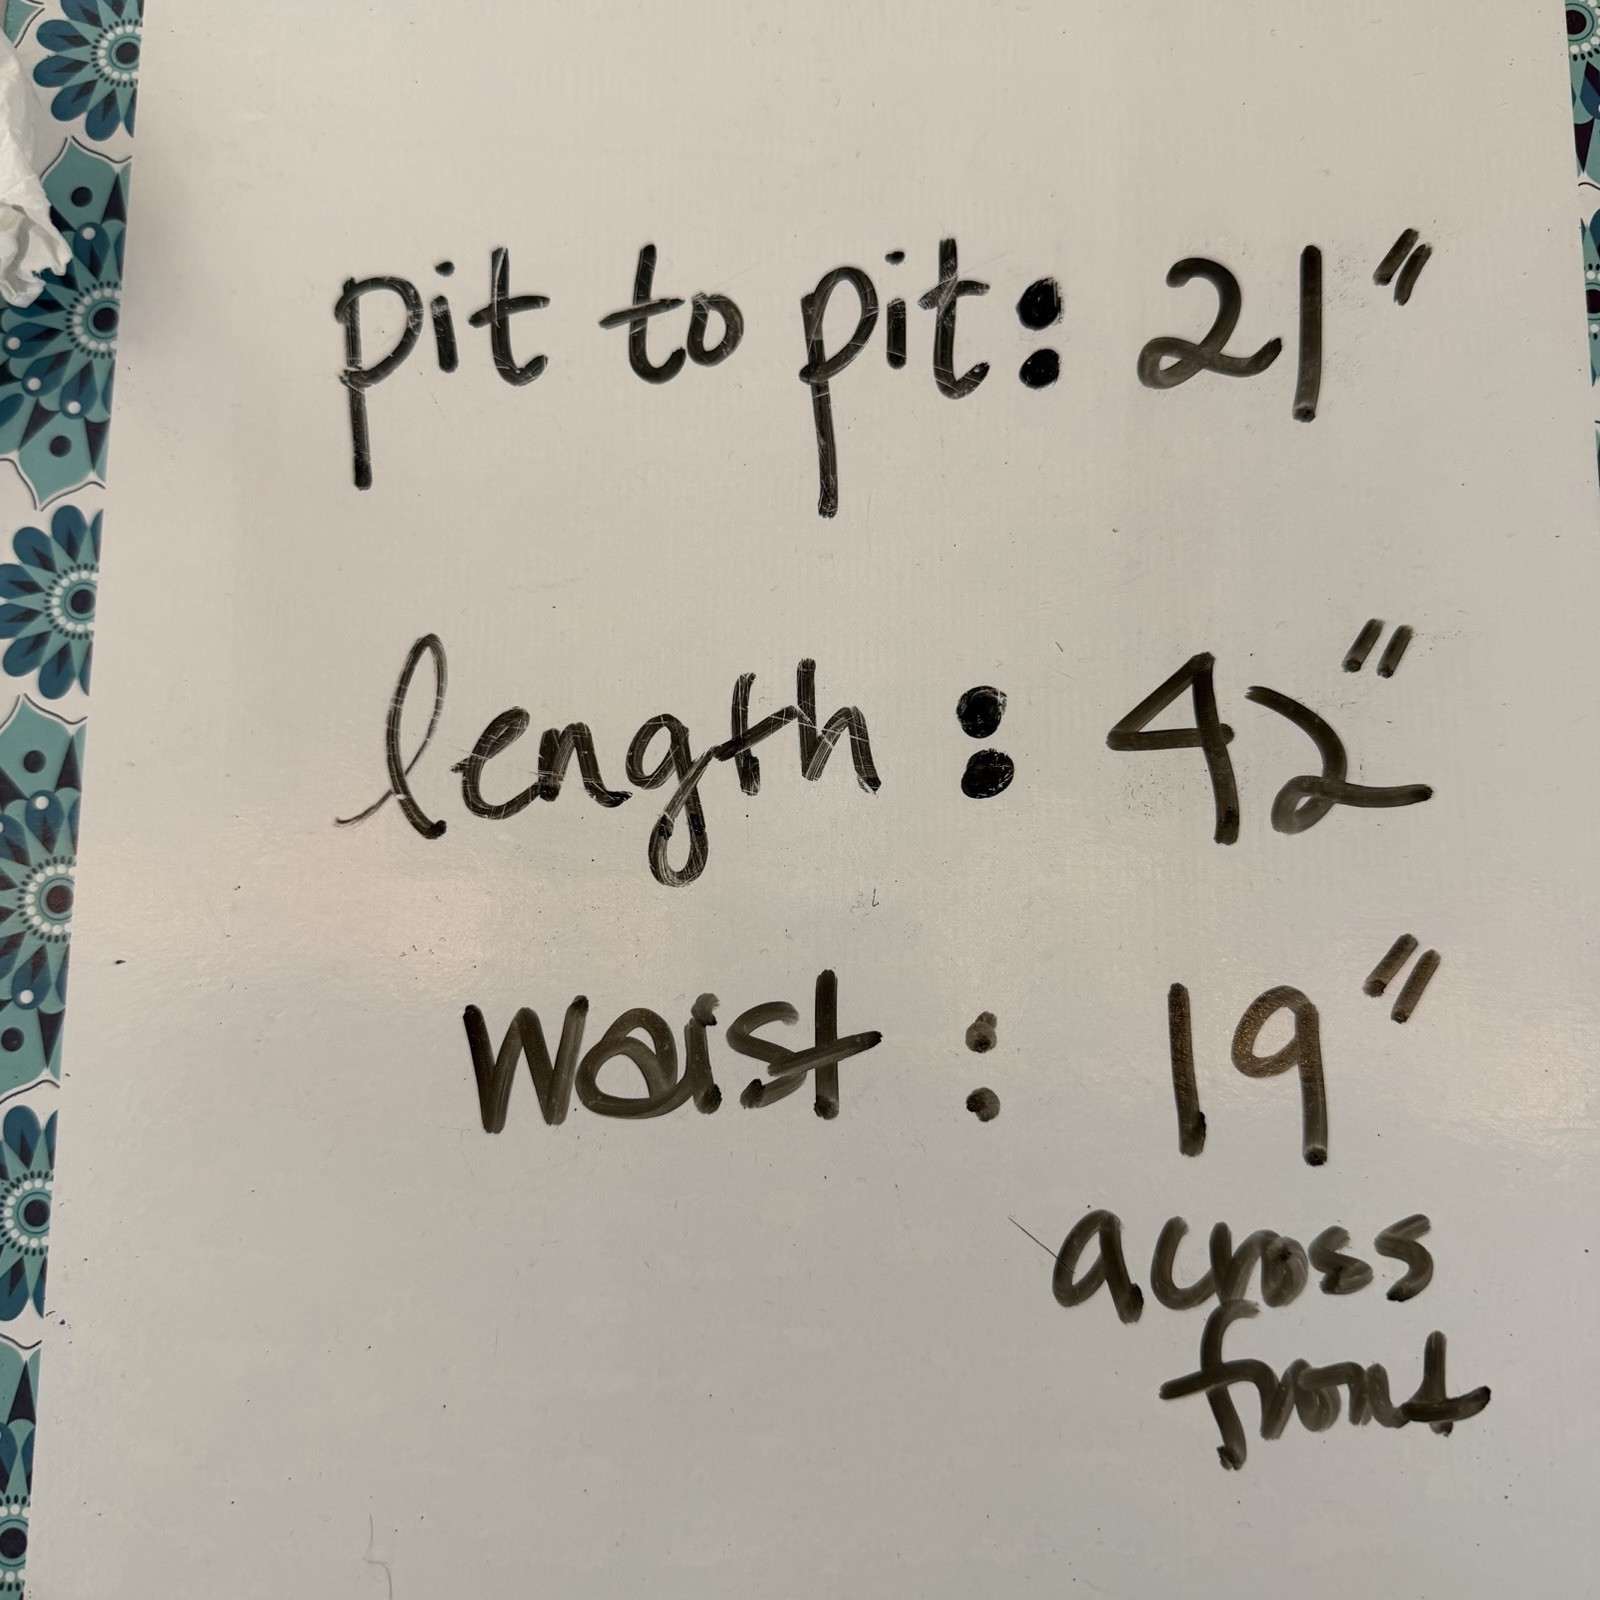 pit to pit: 21"
length: 42"
waist: 19"
across
front